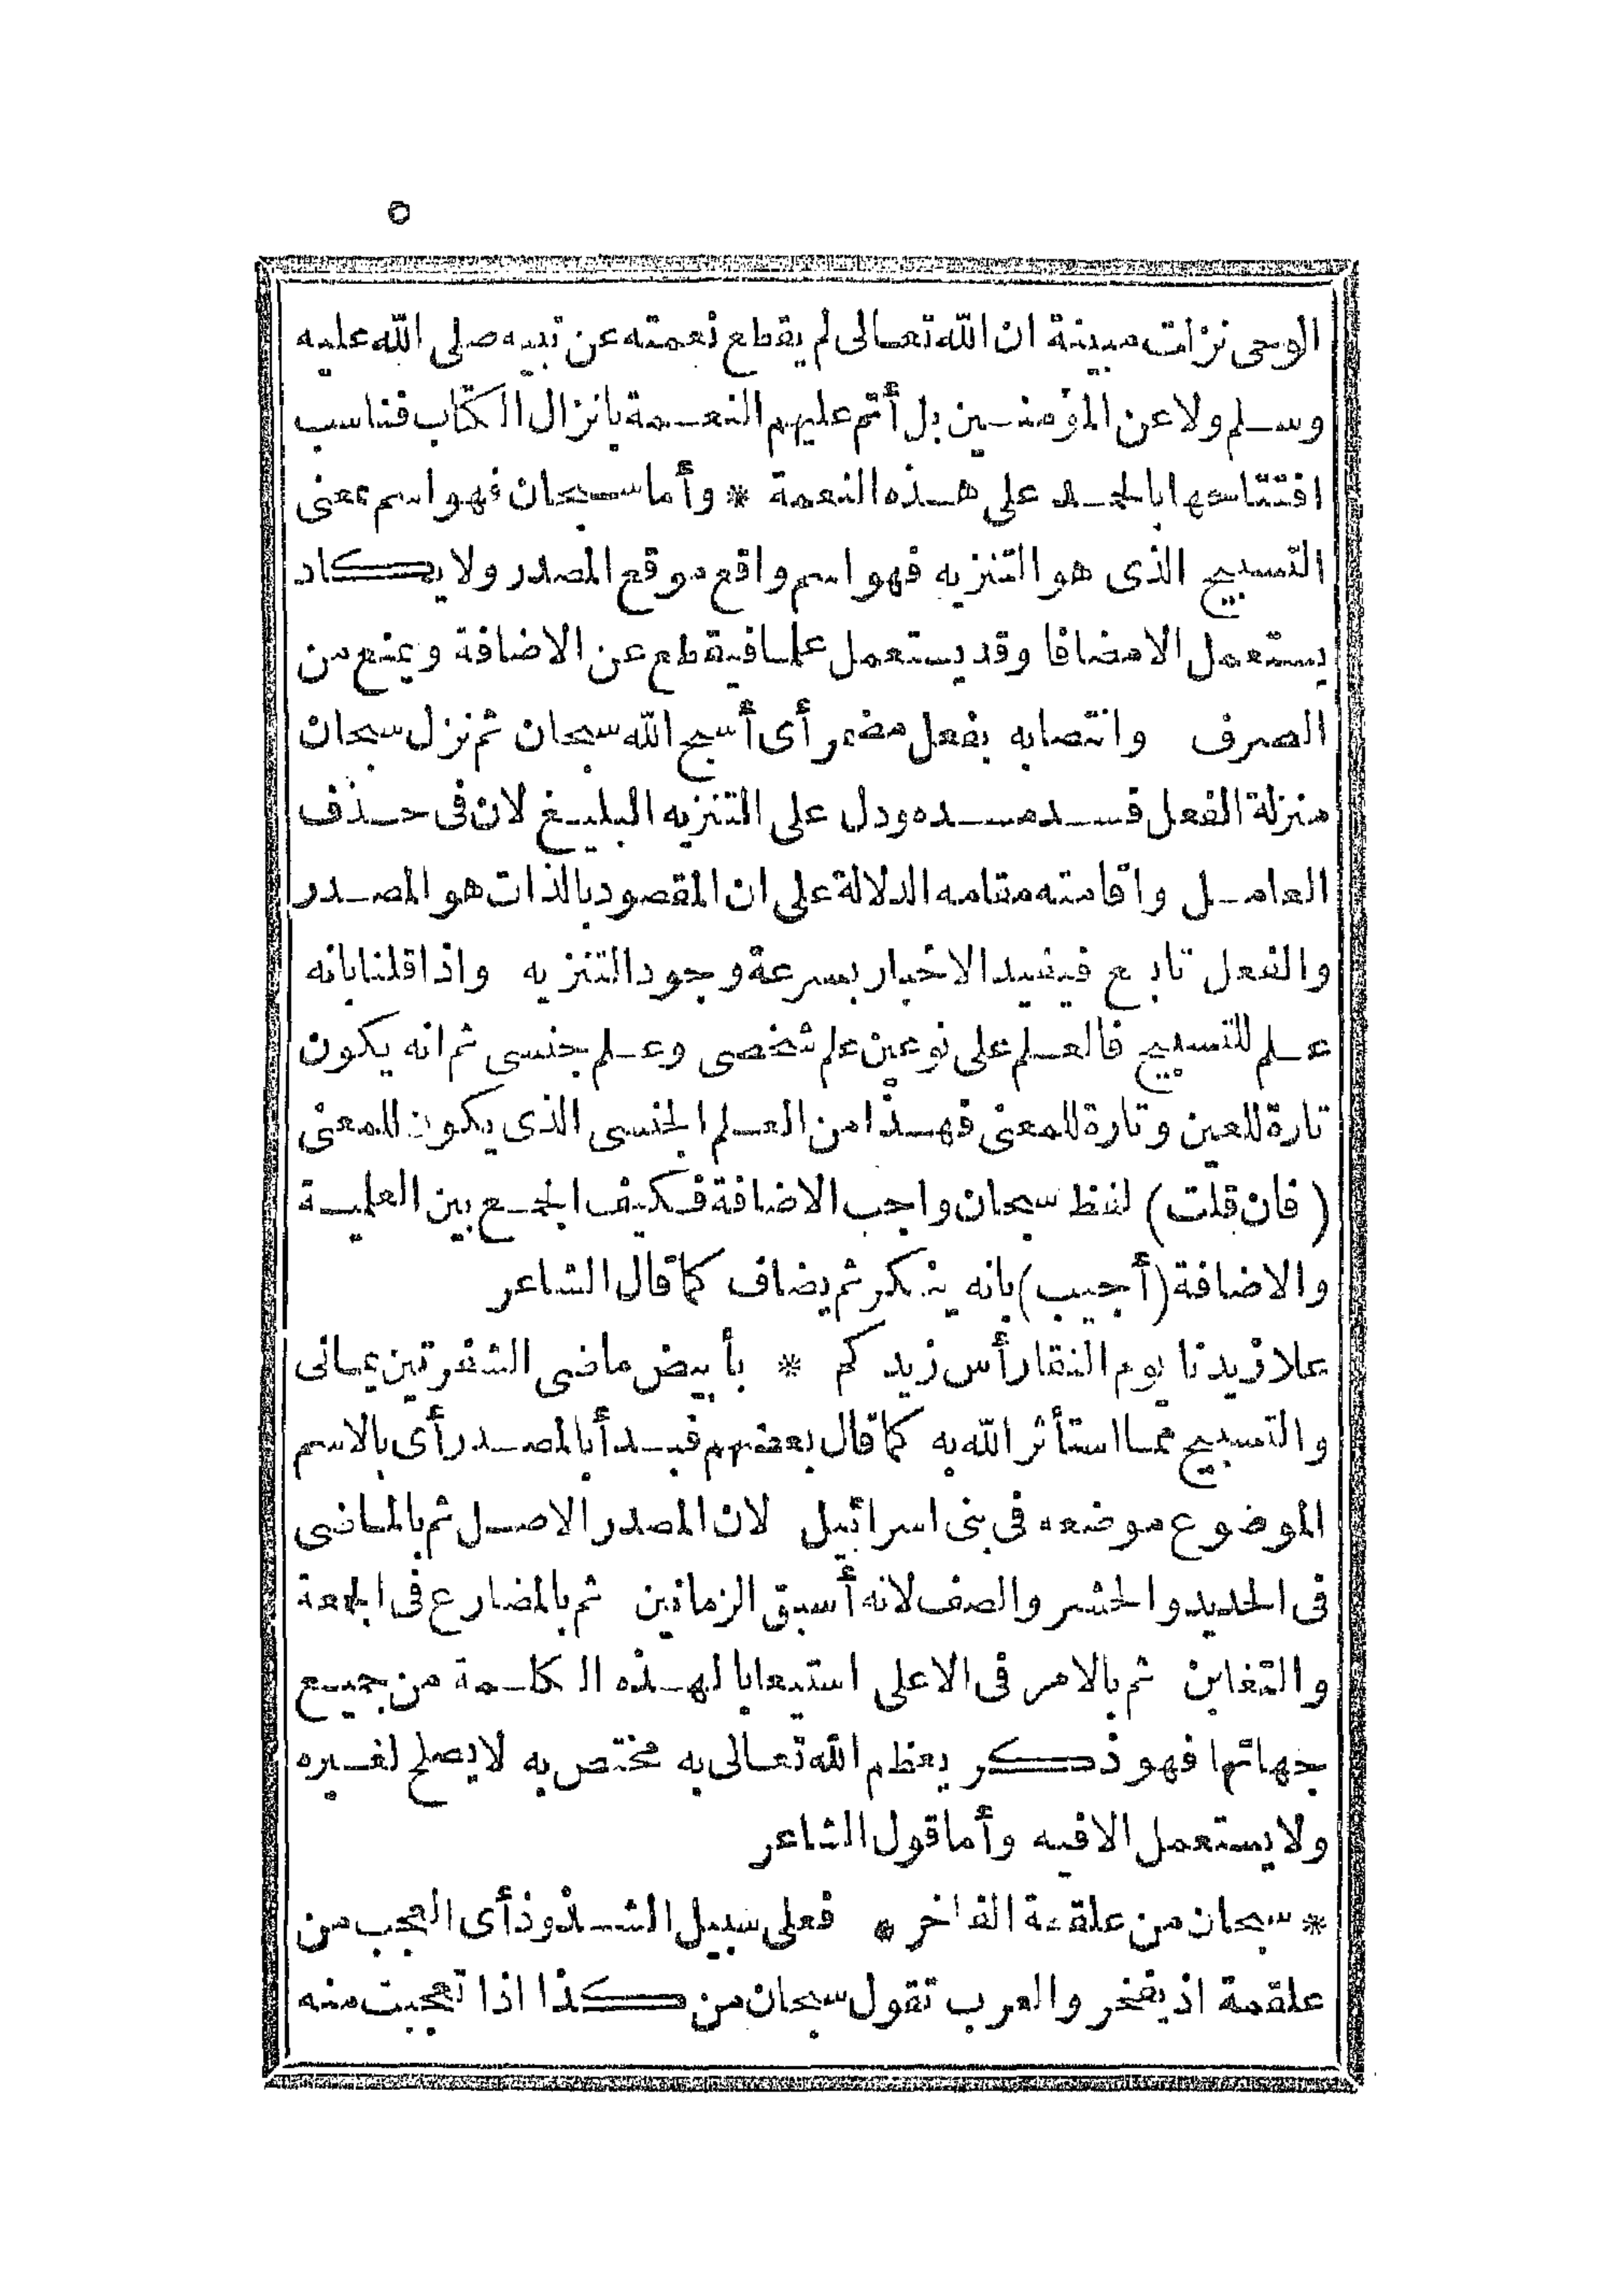 ٥
الوحى نزلت مبينة ان الله تعالى لم يقطع نعمته عن نبيه صلى الله عليه
وسلم ولا عن المؤمنين بل أتم عليهم النعمة بانزال الكتاب فناسب
افتتاحها بالحمد على هذه النعمة * وأما سبحان فهو اسم بمعنى
التسبيح الذى هو التنزيه فهو اسم واقع موقع المصدر ولا يكاد
يستعمل الا مضافا وقد يستعمل علما فيقطع عن الاضافة ويمنع من
الصرف وانتصابه بفعل مضمر أى أسبح الله سبحان ثم نزل سبحان
منزلة الفعل فسد مسده ودل على التنزيه البليغ لان فى حذف
العامل واقامته مقامه الدلالة على ان المقصود بالذات هو المصدر
والفعل تابع فيفيد الاخبار بسرعة وجود التنزيه واذا قلنا بانه
علم للتسبيح فالعلم على نوعين علم شخصى وعلم جنسى ثم انه يكون
تارة للعين وتارة للمعنى فهذا من العلم الجنسى الذى يكون للمعنى
(فان قلت) لفظ سبحان واجب الاضافة فكيف الجمع بين العلمية
والاضافة (أجيب) بانه ينكر ثم يضاف كما قال الشاعر
علا زيدنا يوم النقا رأس زيدكم * بأبيض ماضى الشفرتين يمانى
والتسبيح مما استأثر الله به كما قال بعضهم فبدأ بالمصدر أى بالاسم
الموضوع موضعه فى بنى اسرائيل لان المصدر الاصل ثم بالماضى
فى الحديد والحشر والصف لانه أسبق الزمانين ثم بالمضارع فى الجمعة
والتغابن ثم بالامر فى الاعلى استيعابا لهذه الكلمة من جميع
جهاتها فهو ذكر يعظم الله تعالى به مختص به لا يصلح لغيره
ولا يستعمل الا فيه وأما قول الشاعر
* سبحان من علقمة الفاخر * فعلى سبيل الشذوذ أى العجب من
علقمة اذ يفخر والعرب تقول سبحان من كذا اذا تعجبت منه